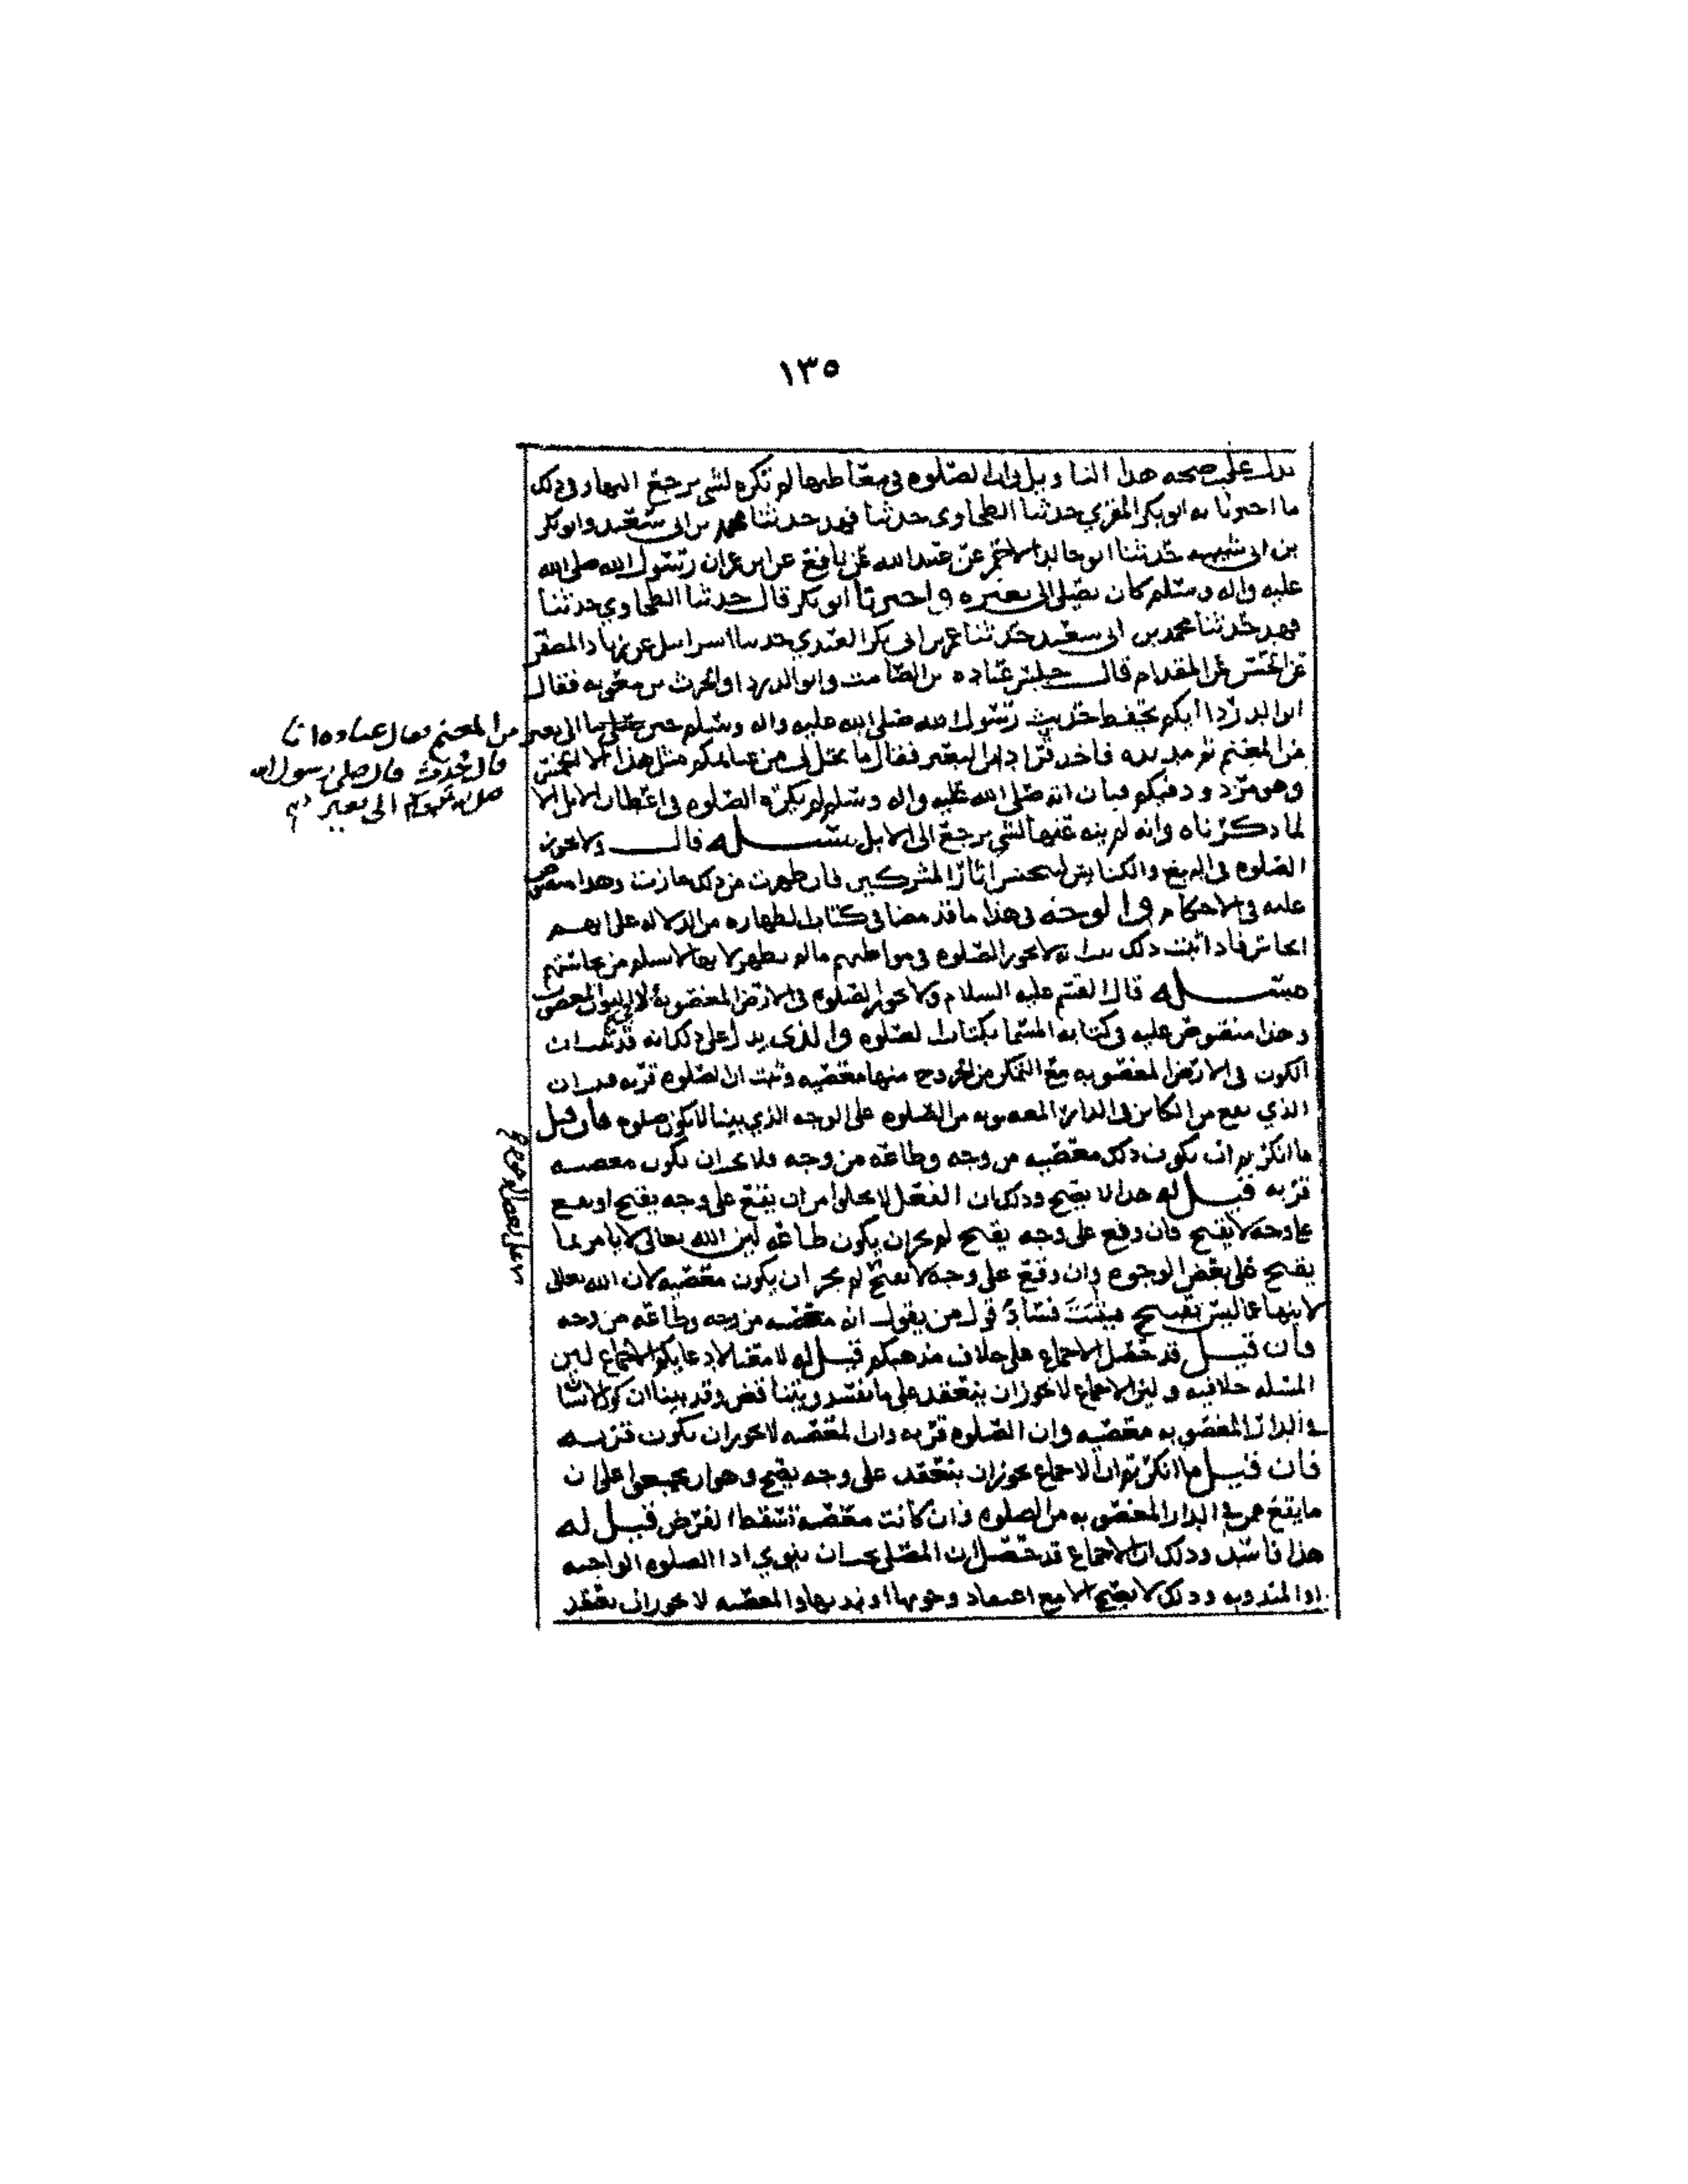 ١٣٥
يدل على صحه هذا التاويل في ان الصلوه في معاطنها لم تكره لشي يرجع اليها روي ذلك
ما اخبرنا به ابو بكر المقري حدثنا الطحاوي حدثنا فهد حدثنا محمد بن ابي سعيد وابو بكر
بن ابي شيبه حدثنا ابو خالد الاحمر عن عبد الله عن نافع عن ابن عمر ان رسول الله صلى الله
عليه واله وسلم كان يصلي الى بعيره واخبرنا ابو بكر قال حدثنا الطحاوي حدثنا
فهد حدثنا محمد بن ابي سعيد حدثنا بن ابي بكر العبدي حدثنا اسراسل عن زياد المصفر
عن الحسن عن المقدام قال جلس عباده بن الصامت وابو الدردا والحرث بن معويه فقال
ابو الدردا ايكم يحفظ حديث رسول الله صلى الله عليه واله وسلم حين صلى بنا الى بعير
من المغنم فقال عباده انا
قال فحدث قال صلى رسول الله
الى بعير
من المغنم ثم مد يده فاخذ قرادا من البعير فقال ما يحل لي من غنايمكم مثل هذا الا الخمس
وهو مردود فيكم فبان انه صلى الله عليه واله وسلم لم يكره الصلوه في اعطان الابل الا
لما ذكرناه وانه لم ينه عنها لشي يرجع الى الابل مسله قال ولا تجوز
الصلوه في البيع والكنايس لسحسر اثار المشركين فان طهرت من ذلك جازت وهذا منصوص
عليه في الاحكام والوجه في هذا ما قد مضا في كتاب الطهاره من الدلاله على انهم
انجاس فاذا ثبت ذلك لا تجوز الصلوه في مواطنهم ما لم تطهر لانها لا تسلم من نجاستهم
مسله قال القسم عليه السلام ولا تجوز الصلوه في الارض المغصوبه
وهذا منصوص عليه في كتابه المسما بكتاب الصلوه والذي يدل على ذلك انه قد ثبت ان
الكون في الارض المغصوبه مع التمكن من الخروج منها معصيه وثبت ان الصلوه قربه ان
الذي يقع من الكاين في الدار المغصوبه من الصلوه على الوجه الذي بينا لا يكون صلوه فان قيل
ما انكرتم ان يكون ذلك معصيه من وجه وطاعه من وجه فلا يجب ان يكون معصيه
قربه قيل له هذا لا يصح وذلك ان الفعل لا يخلوا من ان يقع على وجه يقبح او يقع
على وجه لا يقبح فان وقع على وجه يقبح لم يجز ان يكون طاعه لين الله تعالى لا يامر بما
يقبح على بعض الوجوه وان وقع على وجه لا يقبح لم يجز ان يكون معصيه لان الله تعالى
لا ينها عما ليس بقبيح فيثبت فساد قول من يقول انه معصيه من وجه وطاعه من وجه
فان قيل قد حصل الاجماع على خلاف مذهبكم قيل له لا معنا لادعايكم الاجماع لين
المسله خلافيه ولين الاجماع لا يجوز ان ينعقد على ما يفسد ويتناقض وقد بينا ان كون الانسان
في الدار المغصوبه معصيه وان الصلوه قربه وان المعصيه لا يجوز ان تكون قربه
فان قيل ما انكرتم ان الاجماع يجوز ان ينعقد على وجه يصح وهو ان يجمعوا على ان
ما يقع في الدار المغصوبه من الصلوه وان كانت معصيه تسقط الفرض قيل له
هذا فاسد وذلك ان الاجماع قد حصل ان المصلي يجب ان ينوي ادا الصلوه الواجبه
او المندوبه وذلك لا يصح الا مع اعتقاد وجوبها او ندبها والمعصيه لا يجوز ان يعتقد